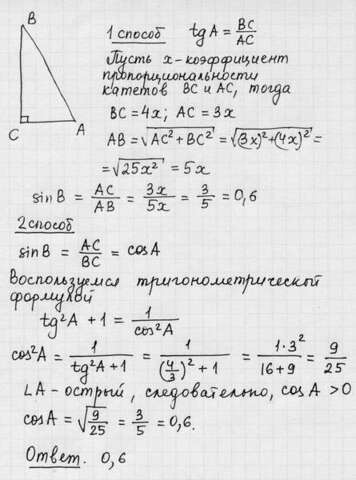 B
C
A
1 способ tg A = BC/AC
Пусть x - коэффициент
пропорциональности
катетов BC и AC, тогда
BC = 4x; AC = 3x
AB = √(AC² + BC²) = √((3x)² + (4x)²) =
= √(25x²) = 5x
sin B = AC/AB = 3x/5x = 3/5 = 0,6
2 способ
sin B = AC/BC = cos A
Воспользуемся тригонометрической
формулой
tg²A + 1 = 1/cos²A
cos²A = 1/(tg²A + 1) = 1/((4/3)² + 1) = 1·3²/(16+9) = 9/25
∠A - острый, следовательно, cos A > 0
cos A = √(9/25) = 3/5 = 0,6.
Ответ. 0,6